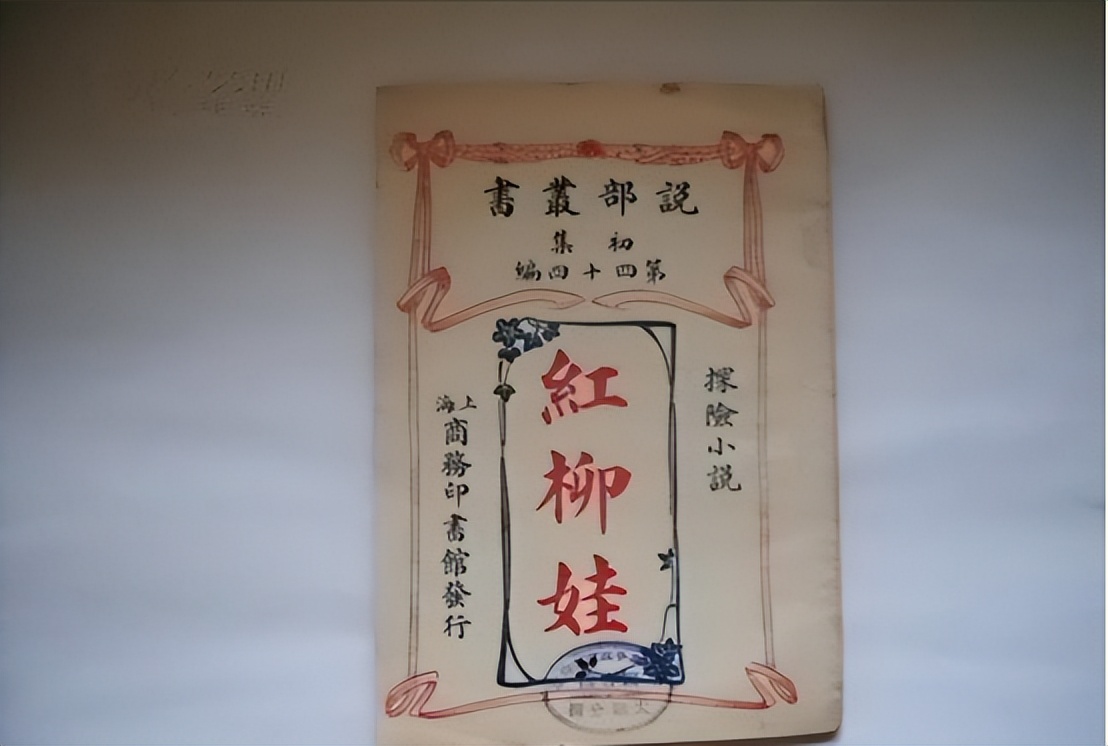 説部叢書
初集
第四十四編
探險小説
紅柳娃
上海商務印書館發行